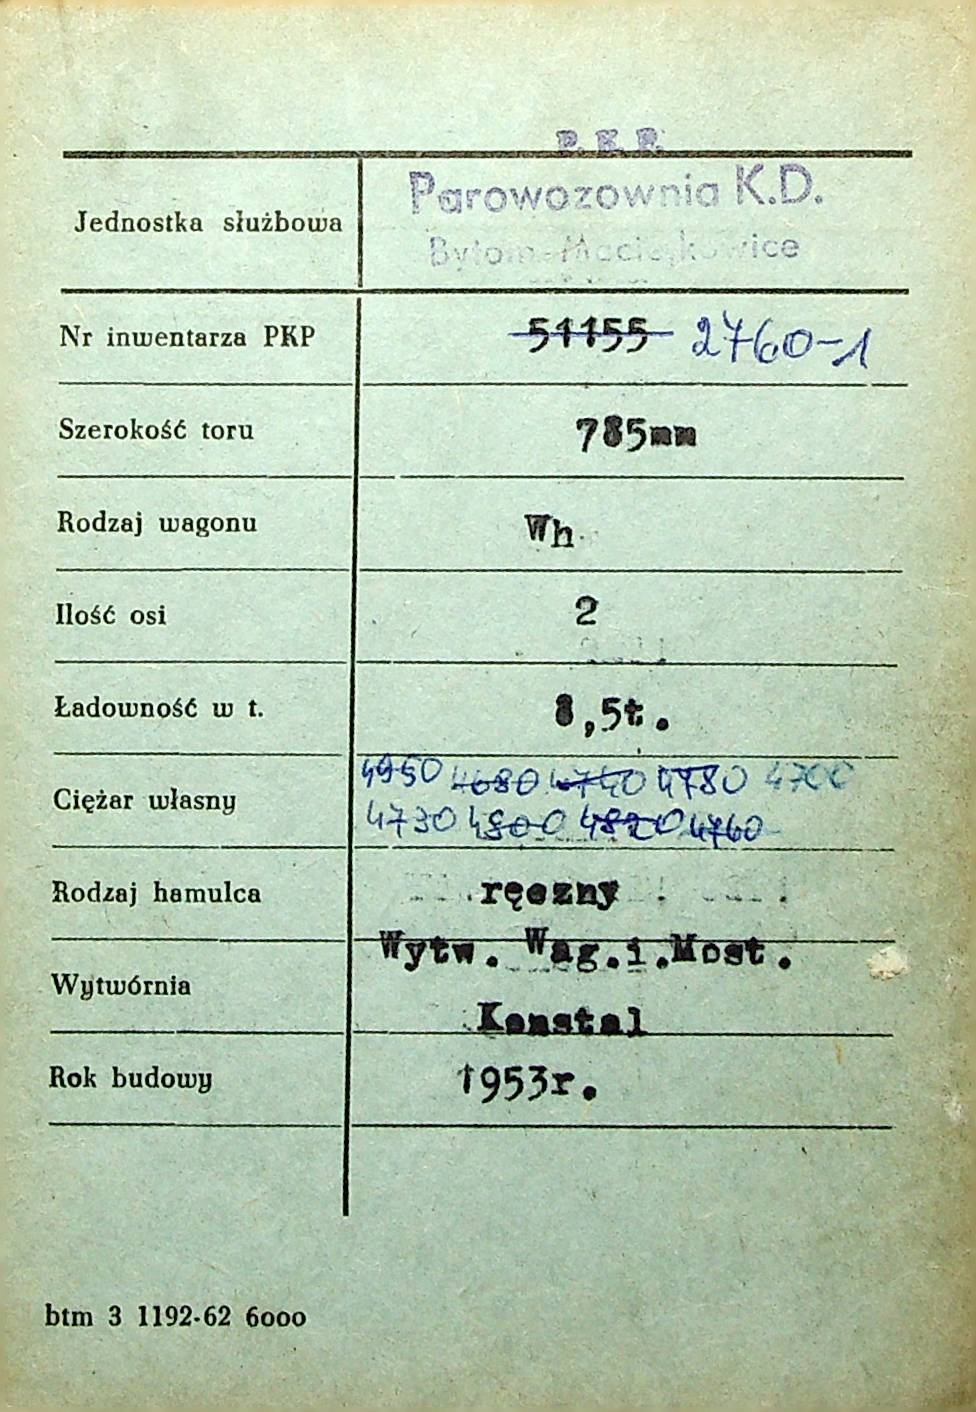 P. K. P.
Parowozownia K.D.
Jednostka służbowa
Bytom-Maciejkowice
Nr inwentarza PKP 51155 2760-1
Szerokość toru 785mm
Rodzaj wagonu Wh
Ilość osi 2
Ładowność w t. 8,5t.
4950 4680 4740 4780 4700
Ciężar własny
4730 4800 4820 4760
Rodzaj hamulca ręczny
Wytw. Wag.i.Most.
Wytwórnia
Konstal
Rok budowy 1953r.
btm 3 1192-62 6ooo